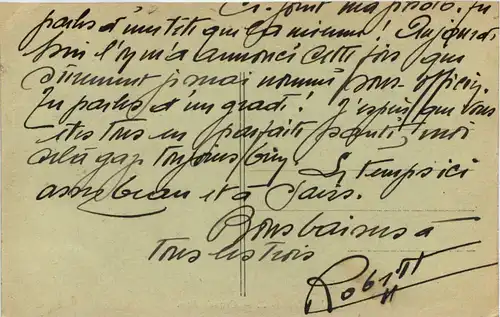 Ci-joint ma photo. Tu
parles d'une tête que la mienne! Aujourd
hui l'on m'a annoncé cette fois que
sûrement je serai nommé sous-officier.
Tu parles d'un gradé! J'espère que vous
êtes tous en parfaite santé, moi
cela gaz toujours bien. Le temps ici
assez beau et à Paris.
Bons baisers à
tous les trois
Robert